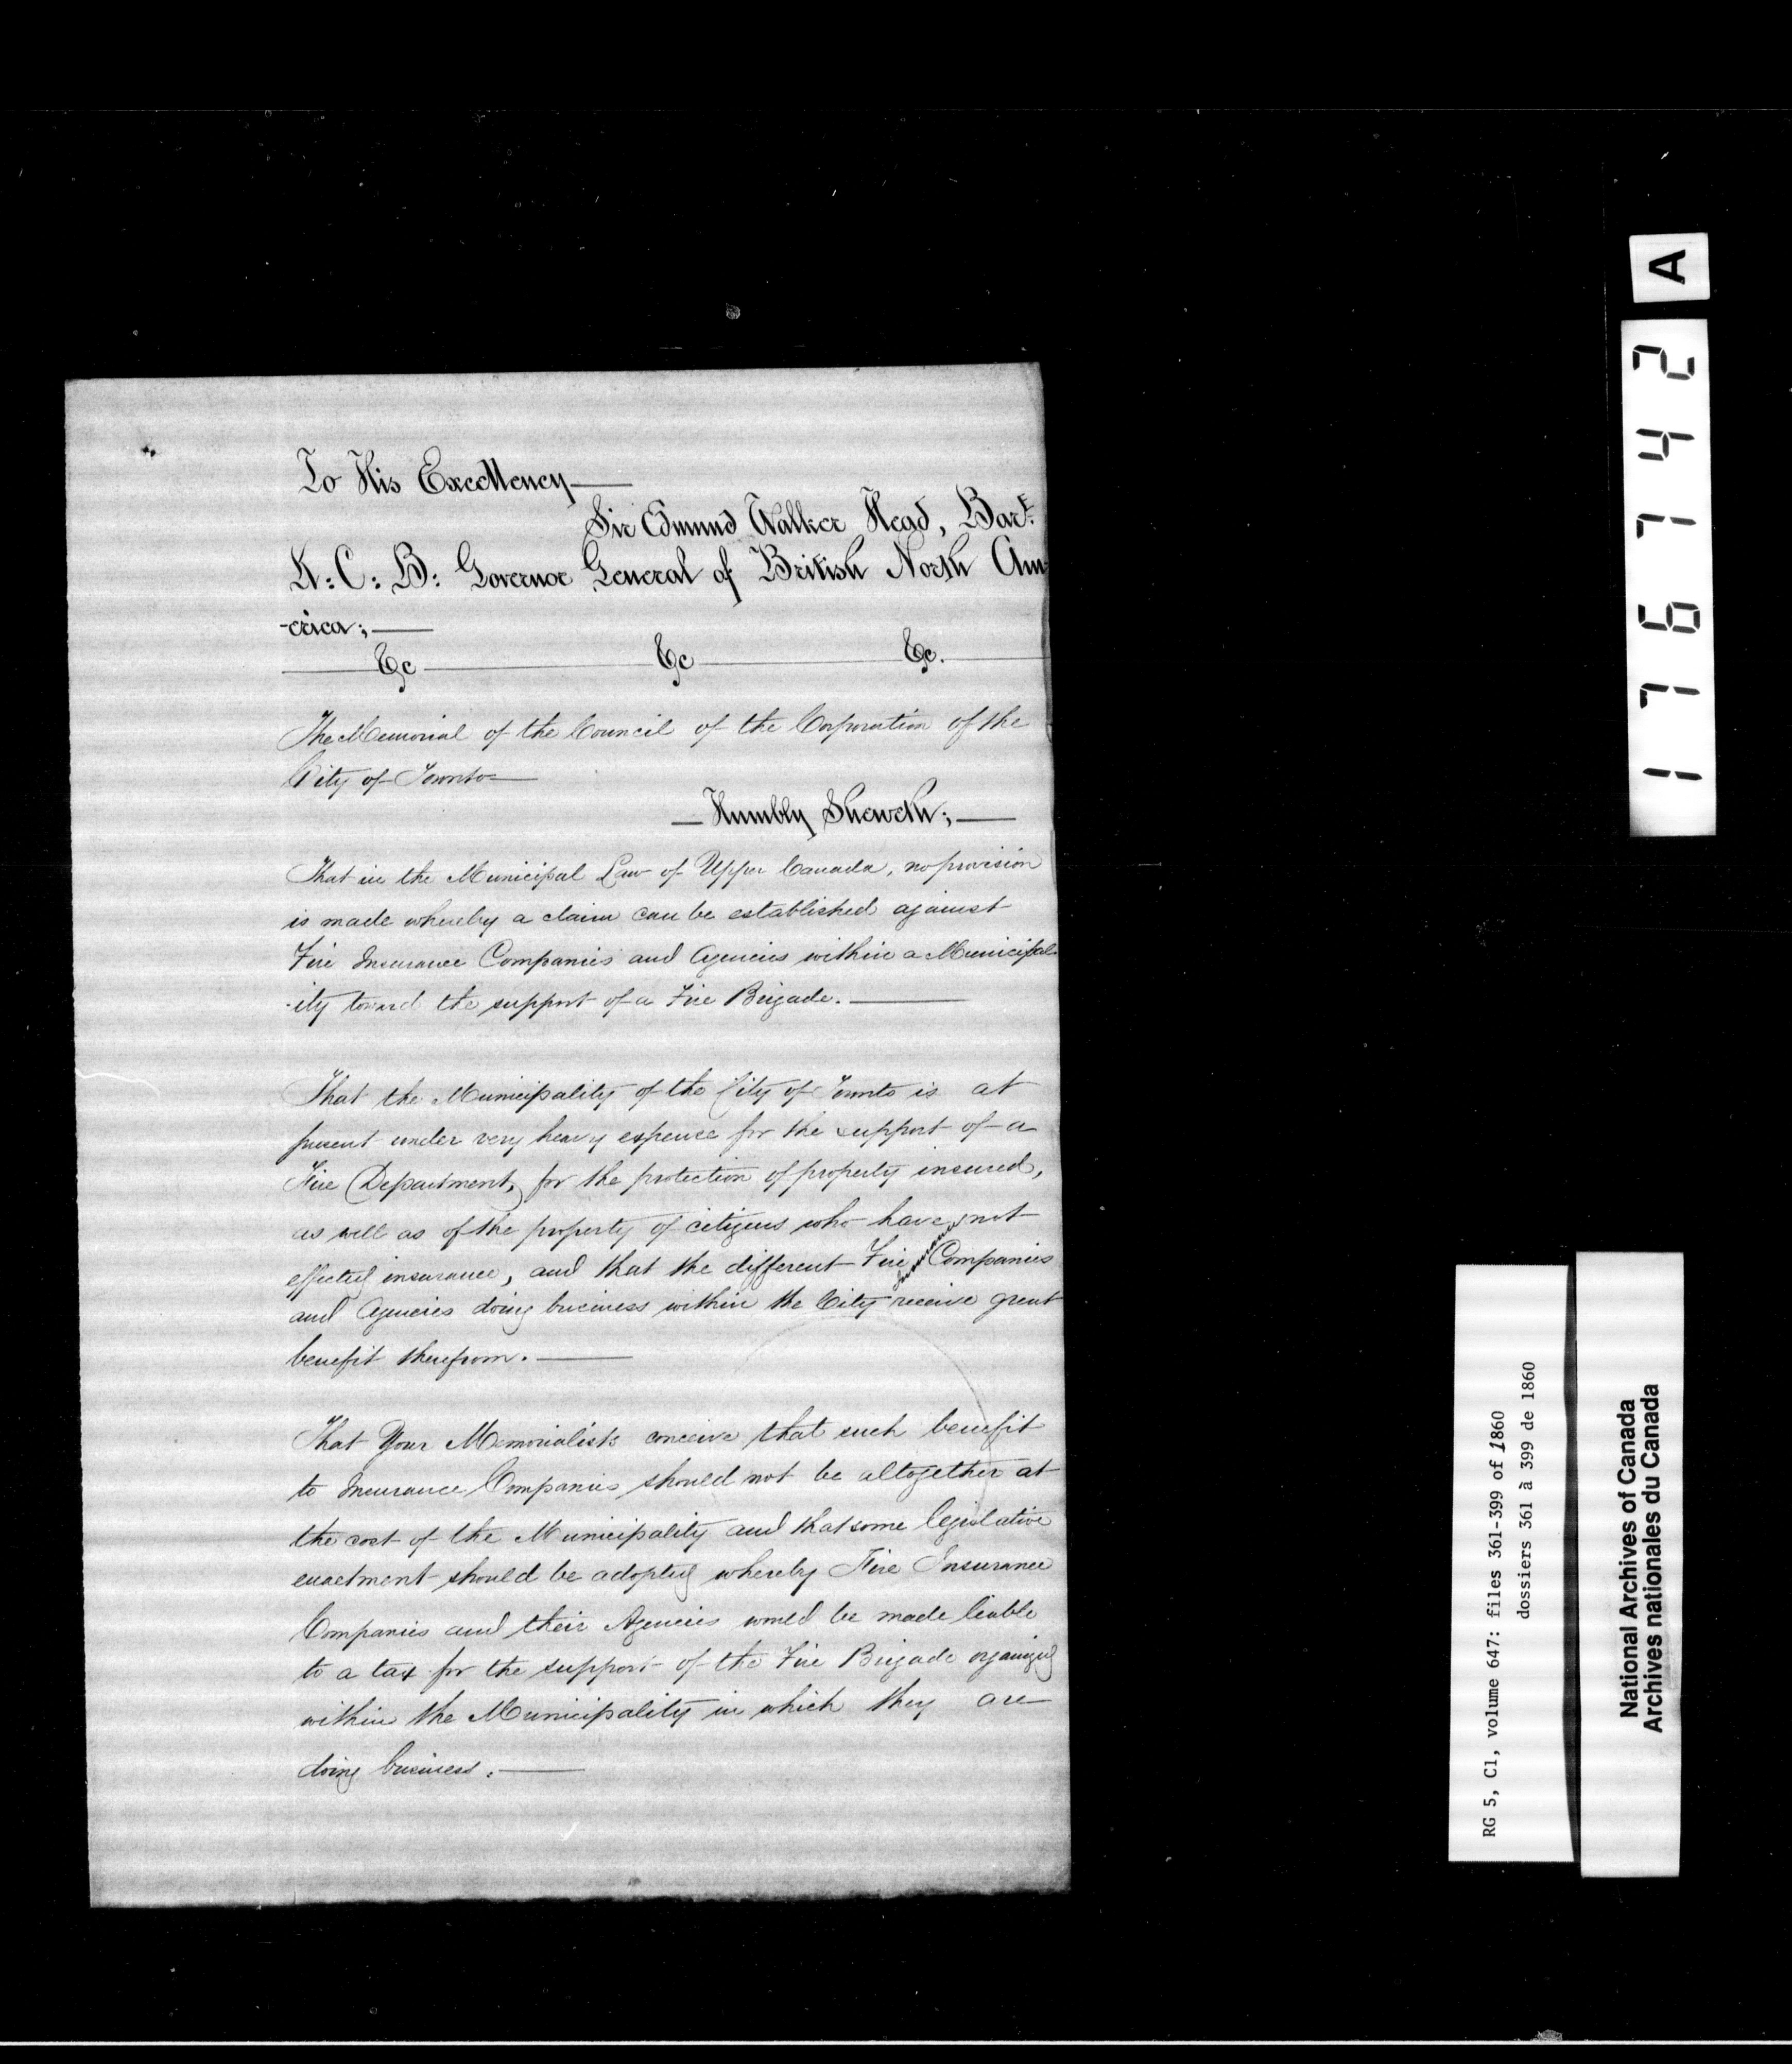 To His Excellency
Sir Edmund Walker Head, Bart.
K: C: B: Governor General of British North Am
-erica;
&c &c &c.
The Memorial of the Council of the Corporation of the
City of Toronto
Humbly Sheweth;
That in the Municipal Law of Upper Canada, no provision
is made whereby a claim can be established against
Fire Insurance Companies and Agencies within a Municipal-
-ity toward the support of a Fire Brigade.
That the Municipality of the City of Toronto is at
present under very heavy expence for the support of a
Fire Department, for the protection of property insured,
as well as of the property of citizens who have not
effected insurance, and that the different Fire Insurance Companies
and Agencies doing business within the City receive great
benefit therefrom.
That Your Memorialists conceive that such benefit
to Insurance Companies should not be altogether at
the cost of the Municipality and that some legislative
enactment should be adopted whereby Fire Insurance
Companies and their Agencies would be made liable
to a tax for the support of the Fire Brigade organized
within the Municipality in which they are
doing business.
A
176742
RG 5, C1, volume 647: files 361-399 of 1860
dossiers 361 à 399 de 1860
National Archives of Canada
Archives nationales du Canada